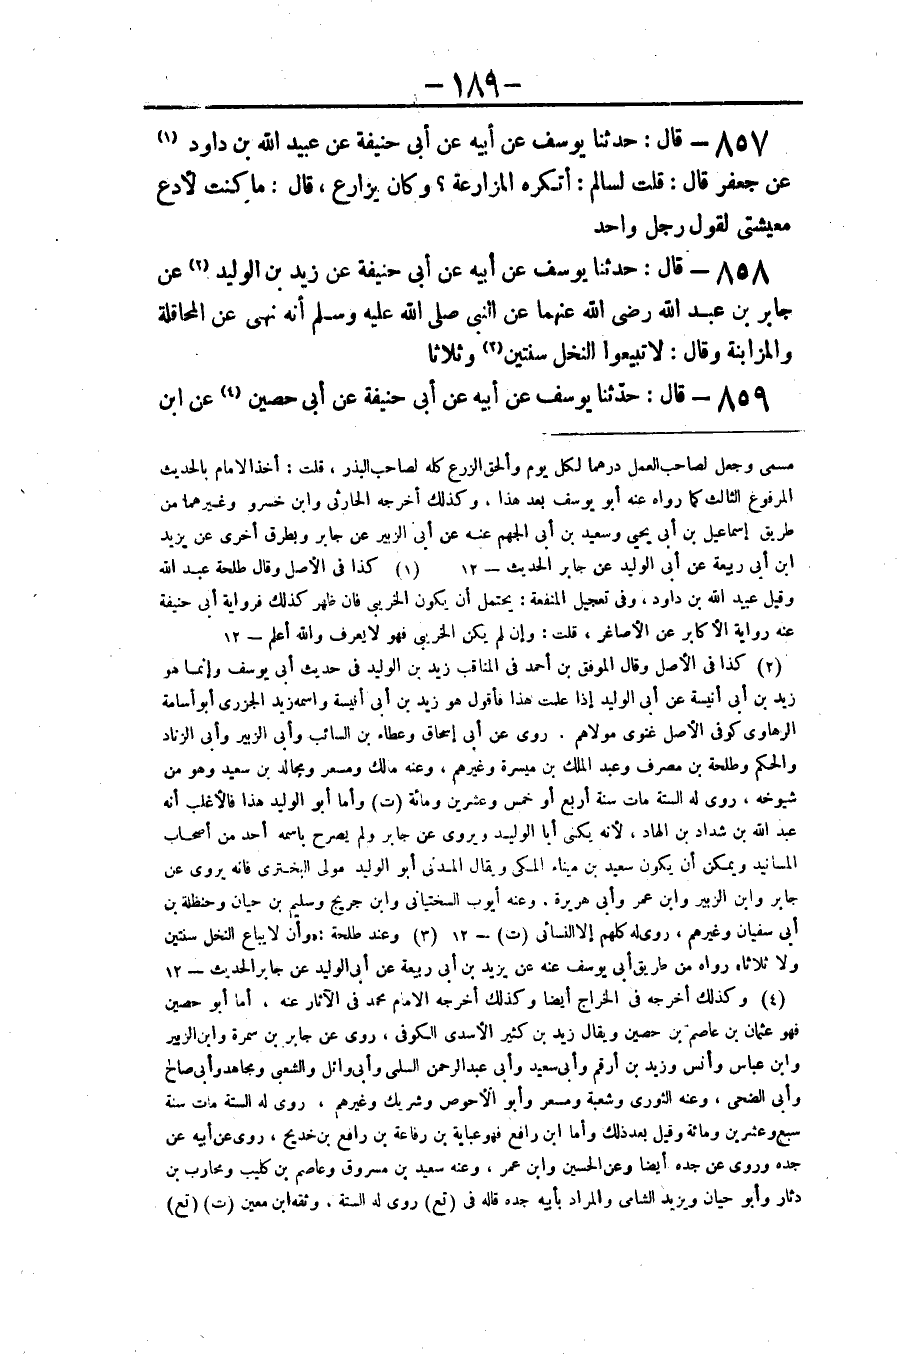 - ١٨٩ -
٨٥٧ - قال : حدثنا يوسف عن أبيه عن أبى حنيفة عن عبيد الله بن داود (١)
عن جعفر قال : قلت لسالم : أتكره المزارعة ؟ وكان يزارع ، قال : ما كنت لأدع
معيشتى لقول رجل واحد
٨٥٨ - قال : حدثنا يوسف عن أبيه عن أبى حنيفة عن زيد بن الوليد (٢) عن
جابر بن عبد الله رضى الله عنهما عن النبى صلى الله عليه وسلم أنه نهى عن المحاقلة
والمزابنة وقال : لا تبيعوا النخل سنتين (٣) وثلاثا
٨٥٩ - قال : حدّثنا يوسف عن أبيه عن أبى حنيفة عن أبى حصين (٤) عن ابن
مسمى وجعل لصاحب العمل درهما لكل يوم وألحق الزرع كله لصاحب البذر ، قلت : أخذ الامام بالحديث
المرفوع الثالث كما رواه عنه أبو يوسف بعد هذا ، وكذلك أخرجه الحارثى وابن خسرو وغيرهما من
طريق إسماعيل بن أبى يحيى وسعيد بن أبى الجهم عنه عن أبى الزبير عن جابر وبطرق أخرى عن يزيد
ابن أبى ربيعة عن أبى الوليد عن جابر الحديث - ١٢ (١) كذا فى الأصل وقال طلحة عبد الله
وقيل عبيد الله بن داود ، وفى تعجيل المنفعة : يحتمل أن يكون الخريبى فان ظهر كذلك فرواية أبى حنيفة
عنه رواية الأكابر عن الأصاغر ، قلت : وإن لم يكن الخريبى فهو لا يعرف والله أعلم - ١٢
(٢) كذا فى الأصل وقال الموفق بن أحمد فى المناقب زيد بن الوليد فى حديث أبى يوسف وإنما هو
زيد بن أبى أنيسة عن أبى الوليد إذا علمت هذا فأقول هو زيد بن أبى أنيسة واسمه زيد الجزرى أبو أسامة
الرهاوى كوفى الأصل غنوى مولاهم . روى عن أبى إسحاق وعطاء بن السائب وأبى الزبير وأبى الزناد
والحكم وطلحة بن مصرف وعبد الملك بن ميسرة وغيرهم ، وعنه مالك ومسعر ومجالد بن سعيد وهو من
شيوخه ، روى له الستة مات سنة أربع أو خمس وعشرين ومائة (ت) وأما أبو الوليد هذا فالأغلب أنه
عبد الله بن شداد بن الهاد ، لأنه يكنى أبا الوليد ويروى عن جابر ولم يصرح باسمه أحد من أصحاب
المسانيد ويمكن أن يكون سعيد بن ميناء المكى ويقال المدنى أبو الوليد مولى البخترى فانه يروى عن
جابر وابن الزبير وابن عمر وأبى هريرة ، وعنه أيوب السختيانى وابن جريج وسليم بن حيان وحنظلة بن
أبى سفيان وغيرهم ، روى له كلهم إلا النسائى (ت) - ١٢ (٣) وعند طلحة : «وأن لا يباع النخل سنتين
ولا ثلاثا» رواه من طريق أبى يوسف عنه عن يزيد بن أبى ربيعة عن أبى الوليد عن جابر الحديث - ١٢
(٤) وكذلك أخرجه فى الخراج أيضا وكذلك أخرجه الامام محمد فى الآثار عنه ، أما أبو حصين
فهو عثمان بن عاصم بن حصين ويقال زيد بن كثير الأسدى الكوفى ، روى عن جابر بن سمرة وابن الزبير
وابن عباس وأنس وزيد بن أرقم وأبى سعيد وأبى عبدالرحمن السلمى وأبى وائل والشعبى ومجاهد وأبى صالح
وأبى الضحى ، وعنه الثورى وشعبة ومسعر وأبو الأحوص وشريك وغيرهم ، روى له الستة مات سنة
سبع وعشرين ومائة وقيل بعد ذلك وأما ابن رافع فهو عباية بن رفاعة بن رافع بن خديج ، روى عن أبيه عن
جده وروى عن جده أيضا وعن الحسين وابن عمر ، وعنه سعيد بن مسروق وعاصم بن كليب ومحارب بن
دثار وأبو حيان ويزيد الشامى والمراد بأبيه جده قاله فى (تع) روى له الستة ، وثقه ابن معين (ت) (تع)